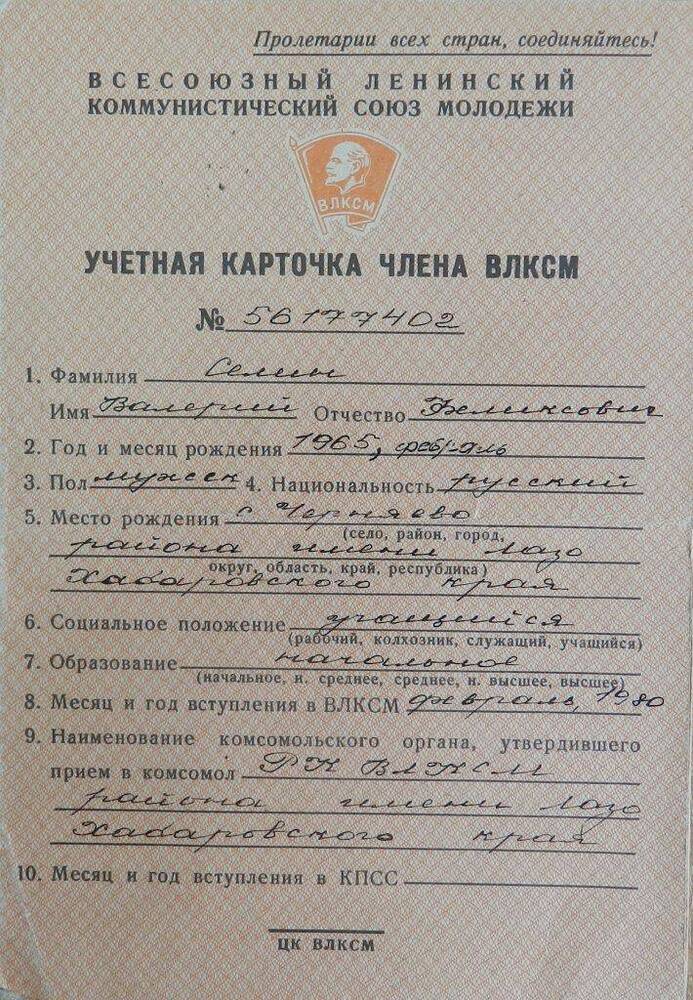 Пролетарии всех стран, соединяйтесь!
ВСЕСОЮЗНЫЙ ЛЕНИНСКИЙ
КОММУНИСТИЧЕСКИЙ СОЮЗ МОЛОДЕЖИ
ВЛКСМ
УЧЕТНАЯ КАРТОЧКА ЧЛЕНА ВЛКСМ
№ 56177402
1. Фамилия Селин
Имя Валерий Отчество Феликсович
2. Год и месяц рождения 1965, февраль
3. Пол мужск 4. Национальность русский
5. Место рождения с Черняево
(село, район, город,
района имени Лазо
округ, область, край, республика)
Хабаровского края
6. Социальное положение учащийся
(рабочий, колхозник, служащий, учащийся)
7. Образование начальное
(начальное, н. среднее, среднее, н. высшее, высшее)
8. Месяц и год вступления в ВЛКСМ февраль, 1980
9. Наименование комсомольского органа, утвердившего
прием в комсомол РК ВЛКСМ
района имени Лазо
Хабаровского края
10. Месяц и год вступления в КПСС
ЦК ВЛКСМ